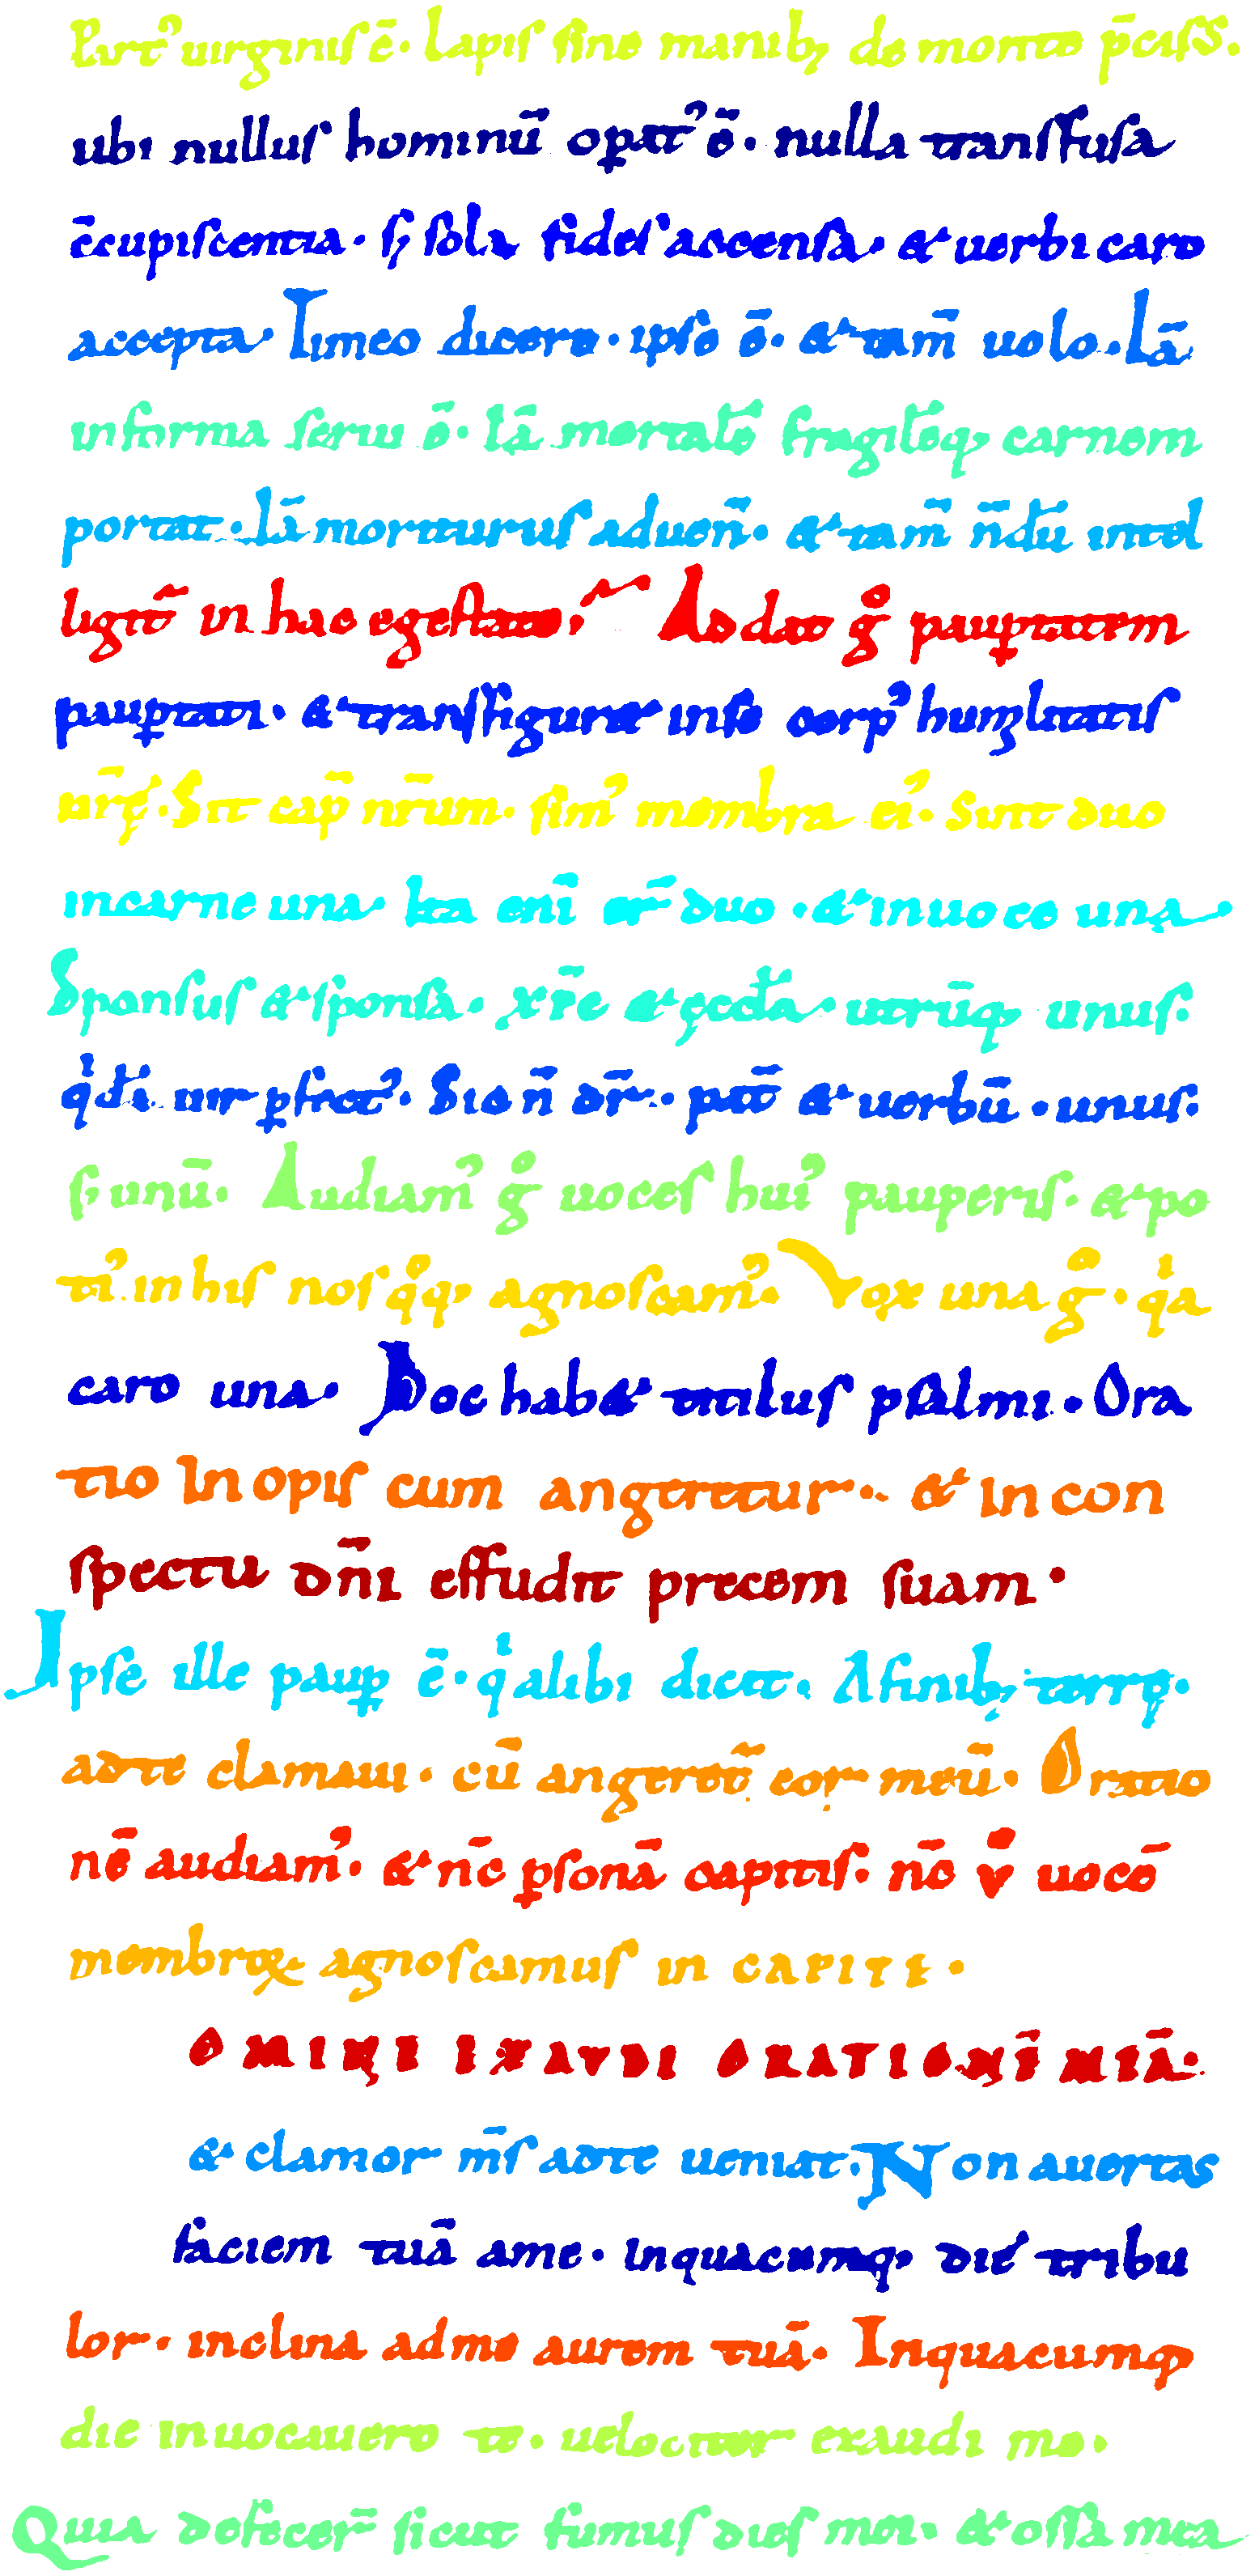 Part᷒ uirginis ē. Lapis sine manib; de monte p̄cisꝰ.
ubi nullus hominū oꝑat᷒ ē. nulla transfusa
c̄cupiscentia. s; sola fides accensa. & uerbi caro
accepta. Timeo dicere. ipse ē. & tam̄ uolo. Iā
in forma serui ē. Iā mortalē fragilēq; carnem
portat. Iā moriturus aduen̄. & tam̄ n̄dū intel
ligit᷒ in hac egestate. Addat gͦ pauꝑtatem
pauꝑtati. & transfiguret in se corp᷒ humilitatis
nr̄ę. Sit cap̄ nr̄um. sim᷒ membra ei᷒. Sint duo
in carne una. Ita eni̅ er̄ duo. & in uoce una
Sponsus & sponsa. xp̄c & ęccl̄a. utrūq; unus.
qͥdā uir ꝑfect᷒. Sic n̄ dr̄. pat̄ & uerbū. unus.
s; unū. Audiam᷒ gͦ uoces hui᷒ pauperis. & po
ti᷒ in his nos qͦq; agnoscam᷒. Vox una gͦ. qͥa
caro una. Hoc hab& titulus psalmi. Ora
tio inopis cum angeretur. & in con
spectu dn̄i effudit precem suam.
Ipse ille pauꝑ ē. qͥ alibi dicit. A finib; terrę.
ad te clamaui. cū angeret᷒ cor meū. Oratio
nē audiam᷒. & nc̄ ꝑsonā capitis. nc̄ vͦ uocē
membroꝝ agnoscamus in CAPITE.
OMINE EXAVDI ORATIONĒ MEĀ.
& clamor ms̄ ad te ueniat. Non auertas
faciem tuā a me. in quacumq; die tribu
lor. inclina ad me aurem tuā. In quacumq;
die inuocauero te. uelociter exaudi me.
Quia defecer̄ sicut fumus dies mei. & ossa mea